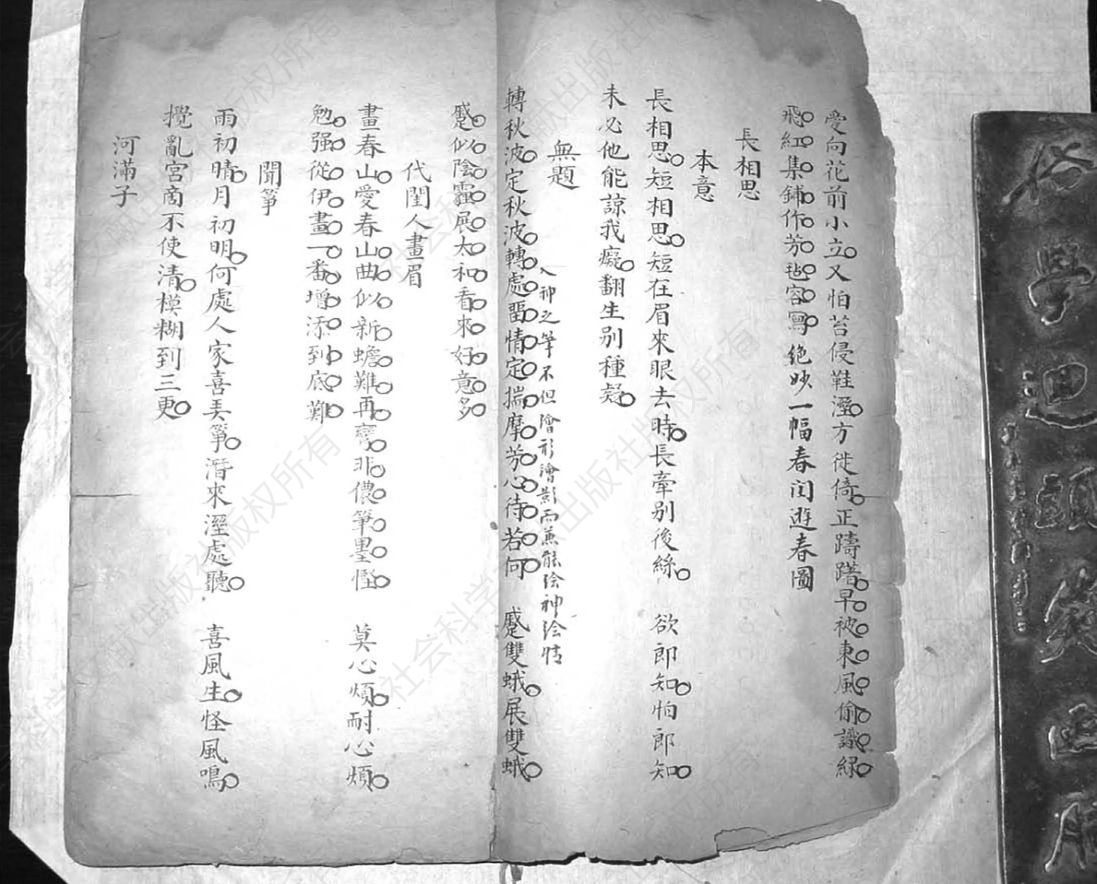 愛向花前小立又怕苔侵鞋溼方徙倚正躊躇早被東風偷識綠
飛紅集鋪作芳毡容寫絶妙一幅春閨遊春圖
長相思
本意
長相思短相思短在眉來眼去時長牽别後絲 欲郎知怕郎知
未必他能諒我癡翻生别種疑
無題
入神之筆不但繪形繪影而兼能绘神绘情
轉秋波定秋波轉處畱情定揣摩芳心待若何 蹙雙蛾展雙蛾
蹙似陰霾展太和看來好意多
代閨人畫眉
畫春山愛春山曲似新蟾難再彎非儂筆墨慳 莫心煩耐心煩
勉强從伊畫一番增添到底難
聞箏
雨初晴月初明何處人家喜弄箏潛來溼處聽 喜風生怪風鳴
攪亂宮商不使清模糊到三更
河滿子
學